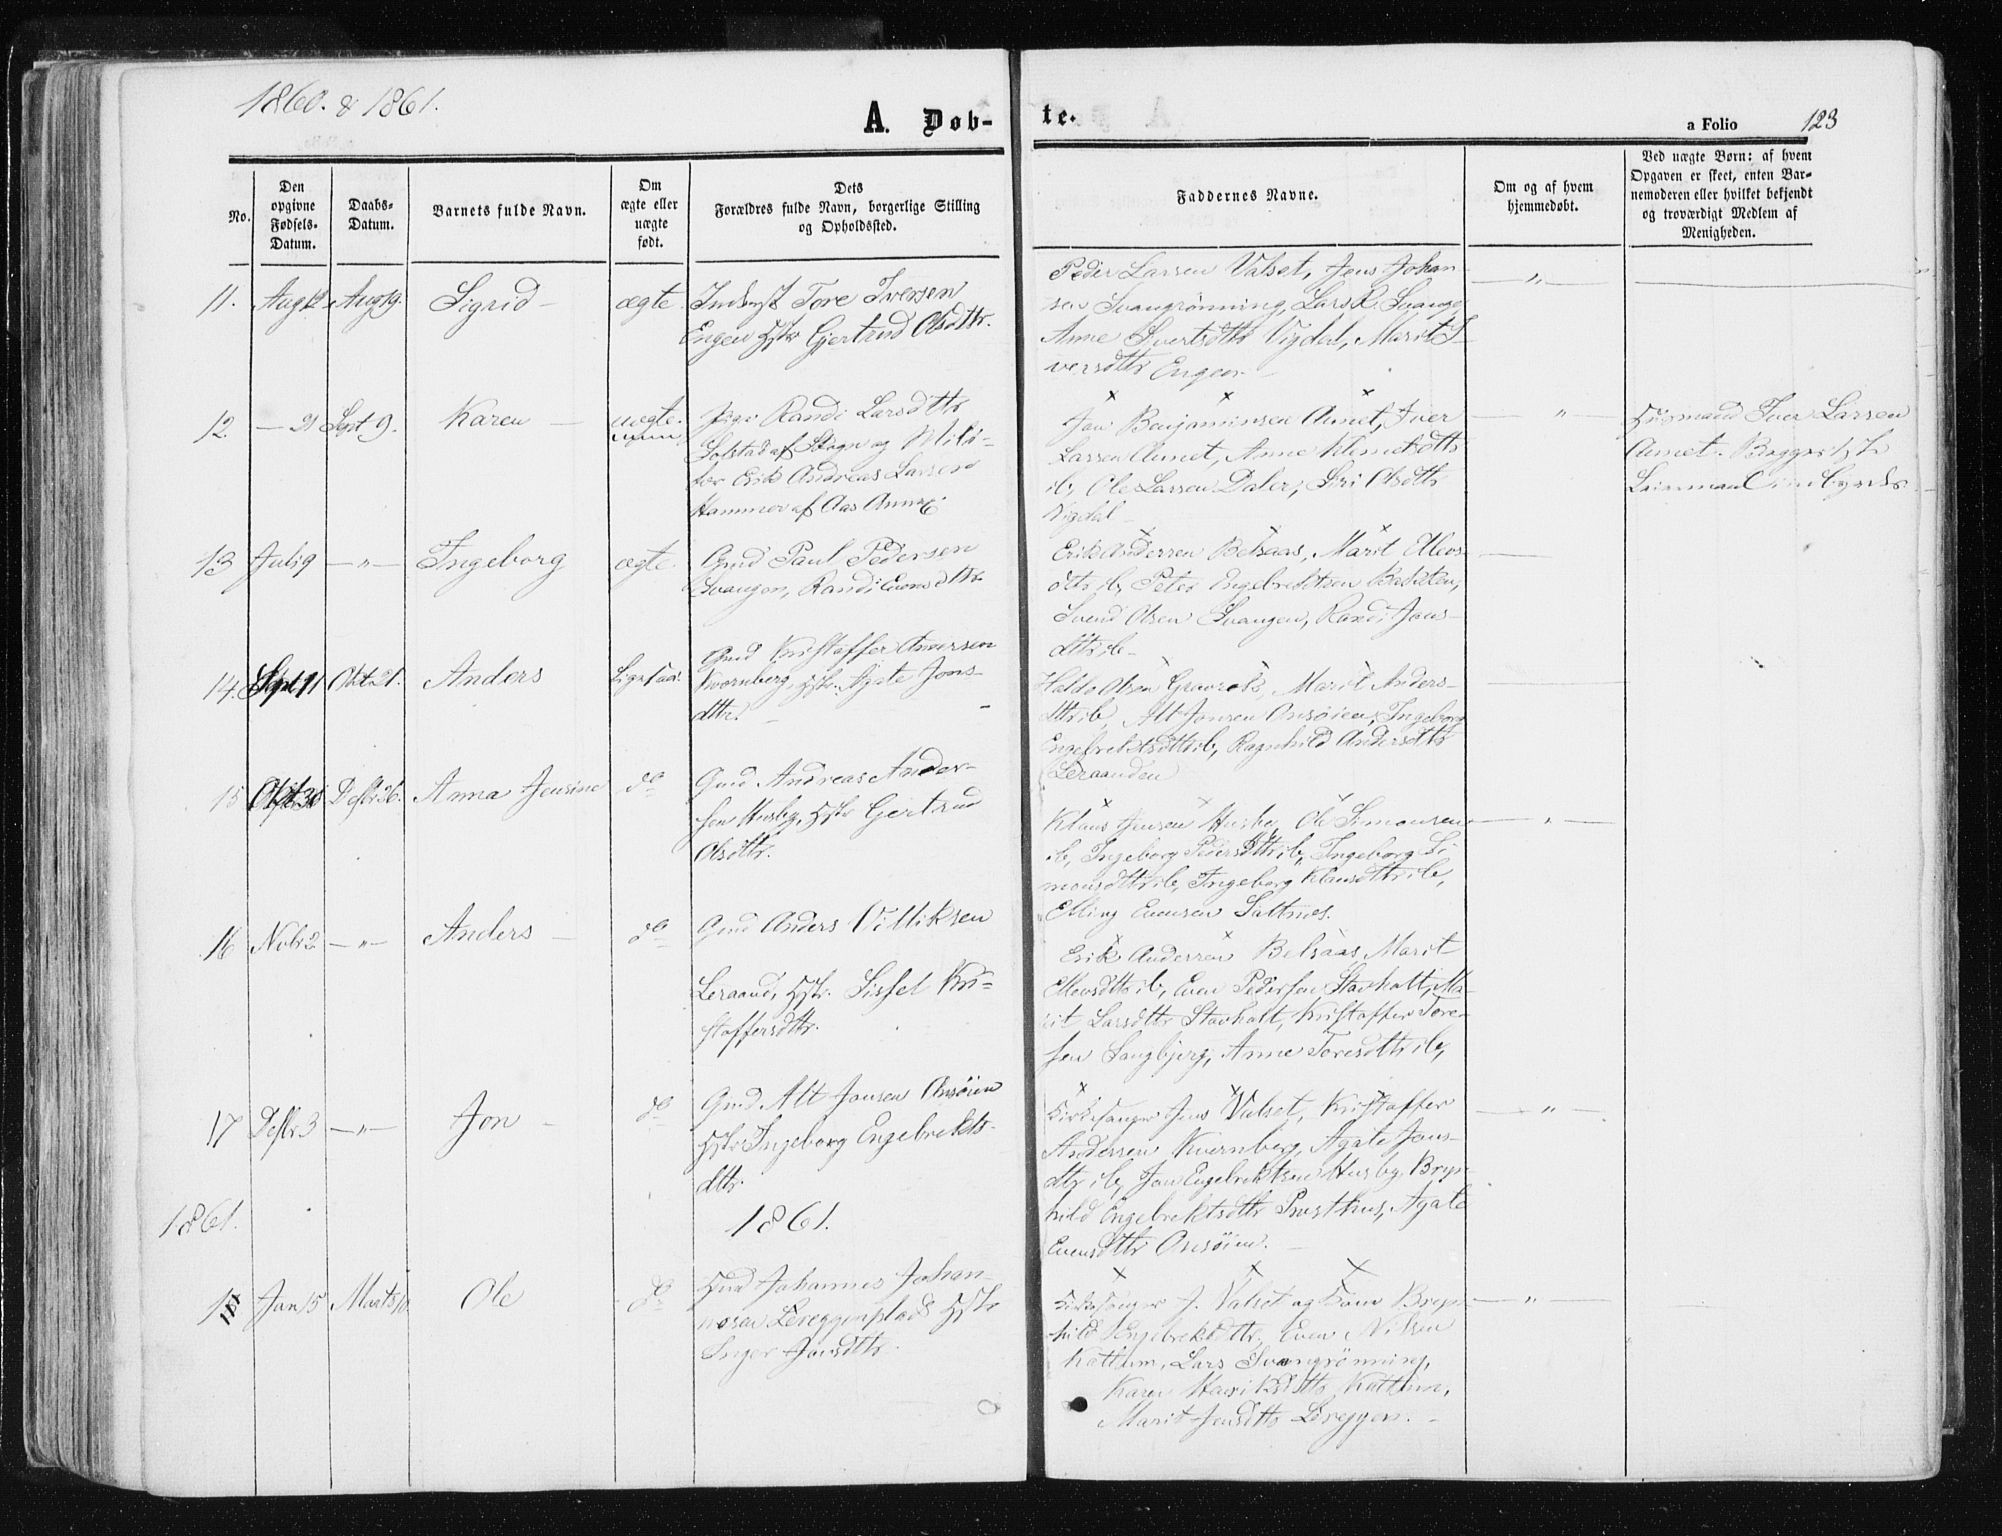 1860. & 1861.
A. Døb-
te.
a Folio 123
No.
Den opgivne Fødsels-Datum.
Daabs-Datum.
Barnets fulde Navn.
Om ægte eller uægte født.
Dets Forældres fulde Navn, borgerlige Stilling og Opholdssted.
Faddernes Navne.
Om og af hvem hjemmedøbt.
Ved uægte Børn: af hvem Opgaven er skeet, enten Barnemoderen eller hvilket bekjendt og troværdigt Medlem af Menigheden.
11. Aug 12 Aug 19. Sigrid ægte Inderst Tore Iversen
Engen Hstr Gjertrud Olsdttr.
Peder Larsen Valset, Jens Johan-
sen Svangrønning, Lars R. Svange,
Anne Sivertsdttr Vigdal, Marit I-
versdttr Engen
12. — 21 Sept 9. Karen uægte Pige Randi Larsdttr
Solstad af Skogn og
Erik Andreas Larsen
Hammer af Aas Annex.
Jon Benjaminsen Aunet, Iver
Larsen Aunet, Anne Klemetsdttr
ib, Ole Larsen Daler, Siri Olsdttr
Vigdal
Huusmand Iver Larsen
Aunet.
13 Juli 9 — " — Ingeborg ægte. Gmd Paul Pedersen
Svangen, Randi Evensdttr
Erik Andersen Belsaas, Marit Ellevs-
dttr ib, Peter Engebrektsen
Svend Olsen Svangen, Randi Jons-
dttr ib
14. Sept 11 Okt 21. Anders Ligesaa Gmd Kristaffer Andersen
Kvernberg, Hstr. Agate Jons-
dttr.
Haldo Olsen Gravraas, Marit Anders-
dttr ib, Alt Jonsen Onsøien, Ingeborg
Engebrektsdttr ib, Ragnhild Andersdttr
Leraanden
15 Okt 30 Desbr 26. Anna Jensine do Gmd Andreas Ander-
sen Husby, Hstr Gertrud
Olsdttr.
Klaus Jensen Husby, Ole Simonsen
ib, Ingeborg Pedersdttr ib, Ingeborg Si-
monsdttr ib, Ingeborg Klausdttr ib,
Elling Evensen Saltnes.
16 Nobr 2 — " — Anders do Gmd Anders Villiksen
Leraand, Hstr. Sissel Kri-
staffersdttr.
Erik Andersen Belsaas, Marit
Ellevsdttr ib, Even Pedersen Stavhalt, Ma-
rit Larsdttr Stavhalt, Kristaffer Tore-
sen Langbjerg, Anne Toresdttr ib,
17 Desbr 3 — " — Jon do Gmd Alt Jonsen Onsøien
Hstr Ingeborg Engebrekts-
dttr.
Kirkesanger Jens Valset, Kristaffer
Andersen Kvernberg, Agate Jons-
dttr ib, Jon Engebrektsen Husby, Bryn-
hild Engebrektsdttr Prusthus, Agate
Evensdttr Onsøien.
1861.
1861.
1 Jan 15 Marts 10. Ole do Hmd Johannes Johan-
nesen Løreggenplads Hstr
Inger Jonsdttr.
Kirkesanger J. Valset og Kone Bryn-
hild Engebrektsdttr, Even Nilsen
Kattum, Lars Svangrønning,
Karen Henriksdttr Kattum,
Marit Jensdttr Løreggen.